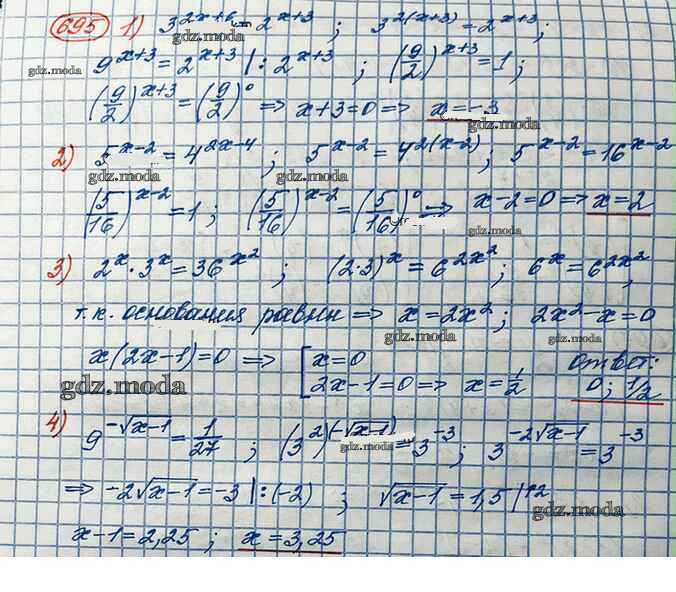 695 1) 3^{2x+6} = 2^{x+3} ; 3^{2(x+3)} = 2^{x+3} ;
9^{x+3} = 2^{x+3} | : 2^{x+3} ; (9/2)^{x+3} = 1 ;
gdz.moda gdz.moda
(9/2)^{x+3} = (9/2)^0 => x+3=0 => x=-3
gdz.moda
2) 5^{x-2} = 4^{2x-4} ; 5^{x-2} = 4^{2(x-2)} ; 5^{x-2} = 16^{x-2}
gdz.moda gdz.moda
(5/16)^{x-2} = 1 ; (5/16)^{x-2} = (5/16)^0 => x-2=0 => x=2
gdz.moda
3) 2^x · 3^x = 36^{x^2} ; (2·3)^x = 6^{2x^2} ; 6^x = 6^{2x^2} ;
т.к. основания равны => x = 2x^2 ; 2x^2 - x = 0
gdz.moda
x(2x-1)=0 => [ x=0 Ответ:
gdz.moda
2x-1=0 => x = 1/2 0 ; 1/2
gdz.moda
4) 9^{-√(x-1)} = 1/27 ; (3^2)^{(-√(x-1))} = 3^{-3} ; 3^{-2√(x-1)} = 3^{-3}
gdz.moda
=> -2√(x-1) = -3 | : (-2) ; √(x-1) = 1,5 | ^2
gdz.moda
x-1 = 2,25 ; x = 3,25